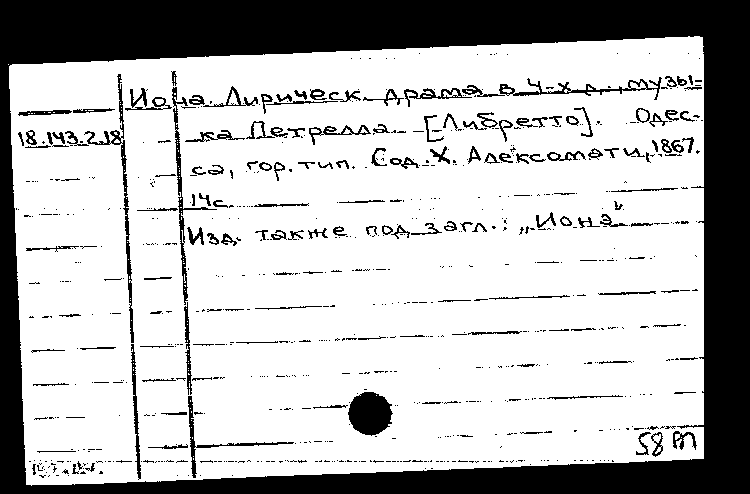 Иона. Лирическ. драма в 4-х д., музы-
18.143.2.18 ка Петрелла. [Либретто]. Одес-
са, гор. тип. Сод. Х. Алексомати, 1867.
14с.
Изд. также под загл.: „Иона"
58 m